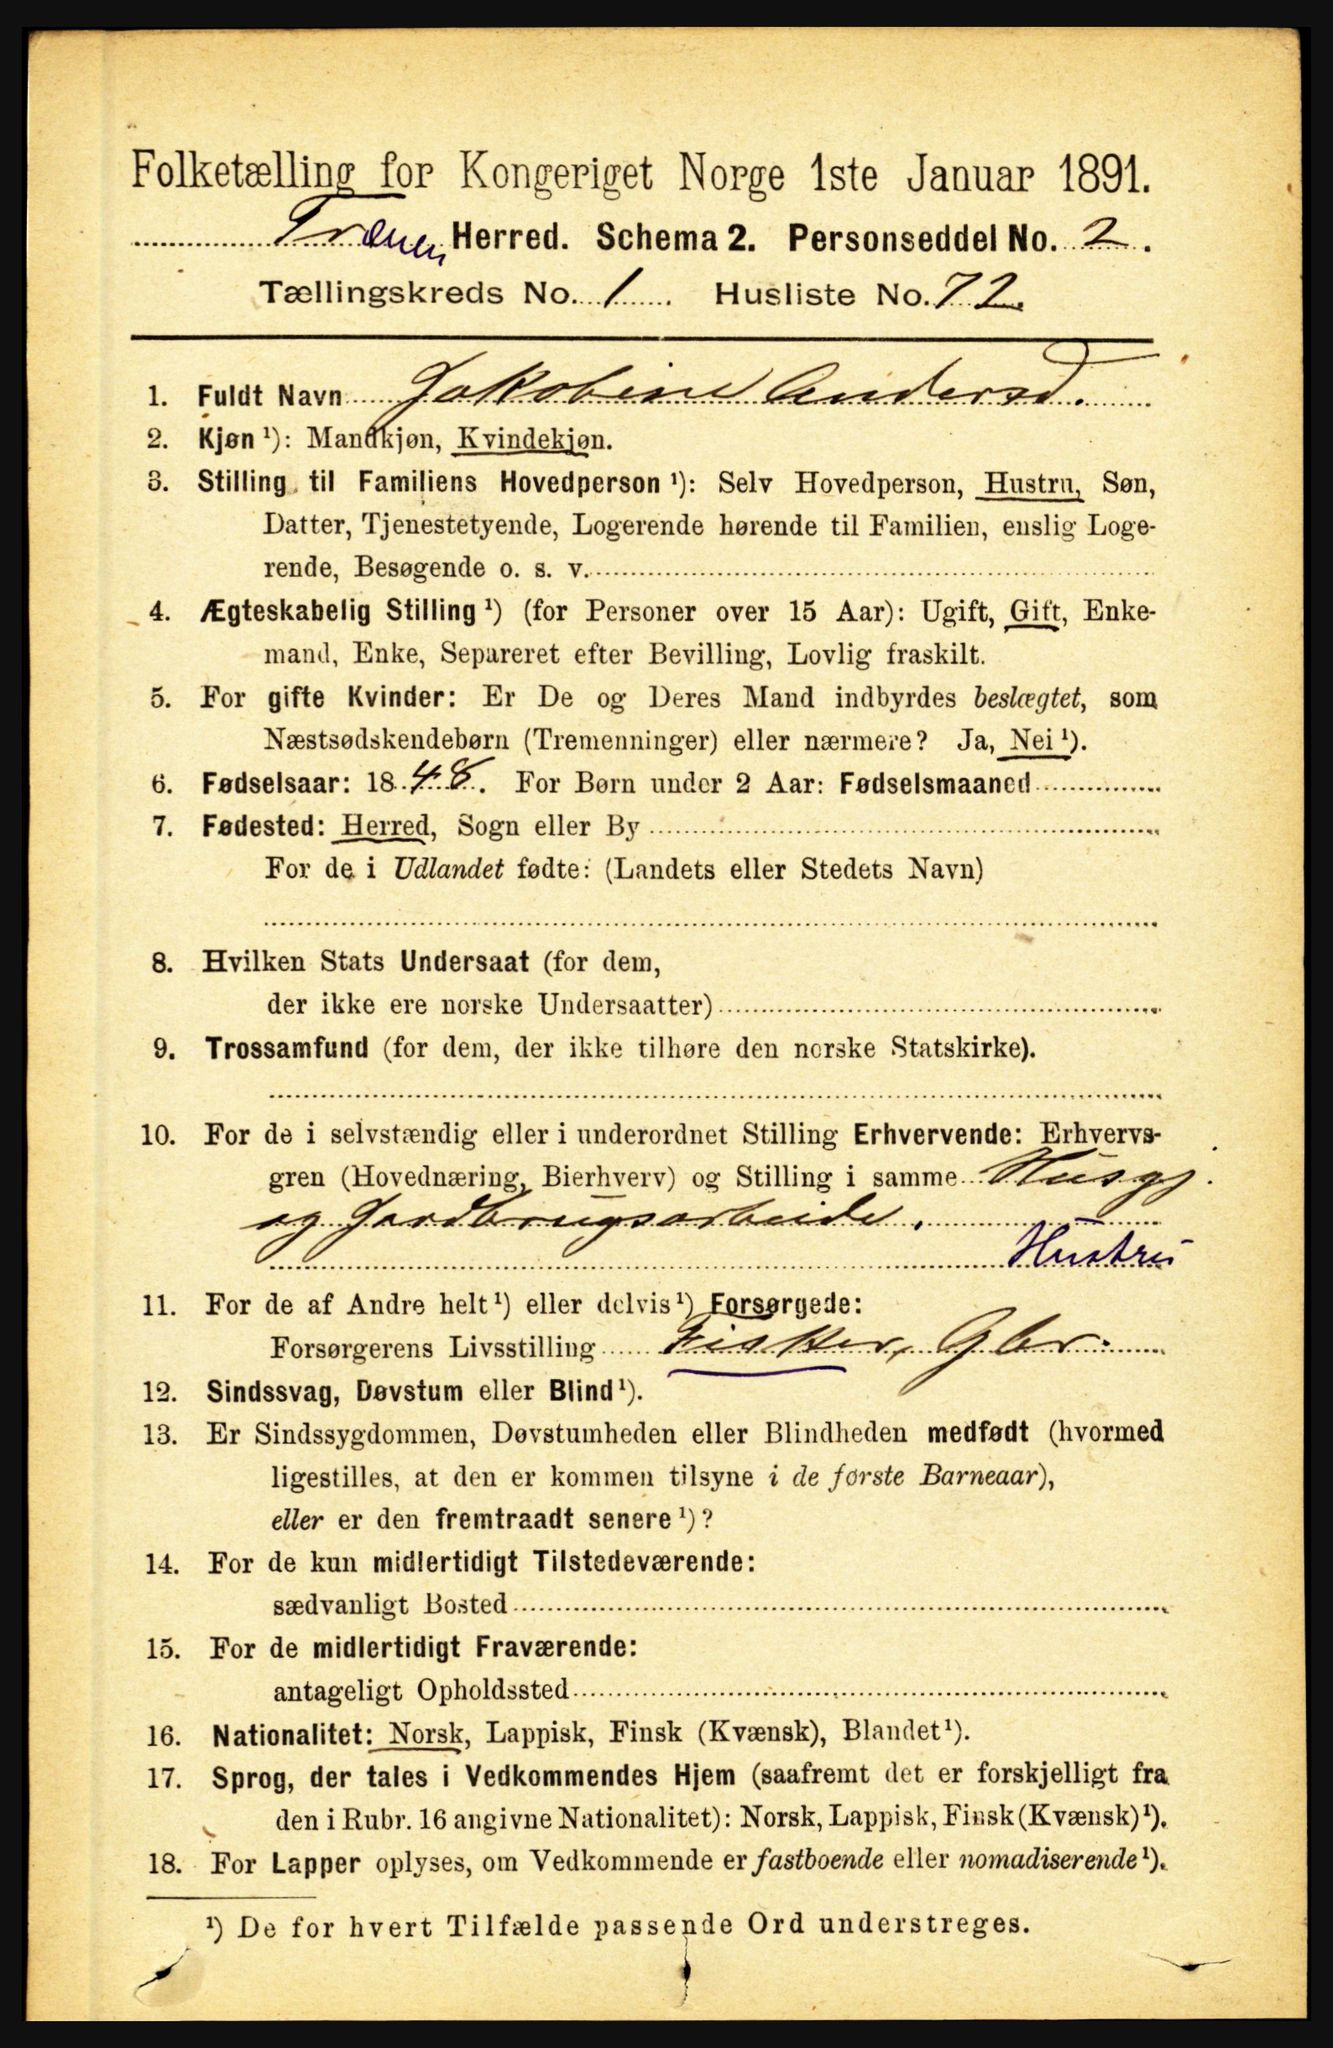 Folketælling for Kongeriget Norge 1ste Januar 1891.
Trænen Herred. Schema 2. Personseddel No. 2.
Tællingskreds No. 1. Husliste No. 72.
1. Fuldt Navn Jakobine Andersd.
2. Kjøn ¹): Mandkjøn, Kvindekjøn.
3. Stilling til Familiens Hovedperson ¹): Selv Hovedperson, Hustru, Søn,
Datter, Tjenestetyende, Logerende hørende til Familien, enslig Loge-
rende, Besøgende o. s. v.
4. Ægteskabelig Stilling ¹) (for Personer over 15 Aar): Ugift, Gift, Enke-
mand, Enke, Separeret efter Bevilling, Lovlig fraskilt.
5. For gifte Kvinder: Er De og Deres Mand indbyrdes beslægtet, som
Næstsødskendebørn (Tremenninger) eller nærmere? Ja, Nei ¹).
6. Fødselsaar: 1848. For Børn under 2 Aar: Fødselsmaaned
7. Fødested: Herred, Sogn eller By
For de i Udlandet fødte: (Landets eller Stedets Navn)
8. Hvilken Stats Undersaat (for dem,
der ikke ere norske Undersaatter)
9. Trossamfund (for dem, der ikke tilhøre den norske Statskirke).
10. For de i selvstændig eller i underordnet Stilling Erhvervende: Erhvervs-
gren (Hovednæring, Bierhverv) og Stilling i samme Husgj.
og Jordbrugsarbeide.
Hustru
11. For de af Andre helt ¹) eller delvis ¹) Forsørgede:
Forsørgerens Livsstilling Fisker, Gbr.
12. Sindssvag, Døvstum eller Blind ¹).
13. Er Sindssygdommen, Døvstumheden eller Blindheden medfødt (hvormed
ligestilles, at den er kommen tilsyne i de første Barneaar),
eller er den fremtraadt senere ¹)?
14. For de kun midlertidigt Tilstedeværende:
sædvanligt Bosted
15. For de midlertidigt Fraværende:
antageligt Opholdssted
16. Nationalitet: Norsk, Lappisk, Finsk (Kvænsk), Blandet ¹).
17. Sprog, der tales i Vedkommendes Hjem (saafremt det er forskjelligt fra
den i Rubr. 16 angivne Nationalitet): Norsk, Lappisk, Finsk (Kvænsk) ¹).
18. For Lapper oplyses, om Vedkommende er fastboende eller nomadiserende ¹).
¹) De for hvert Tilfælde passende Ord understreges.